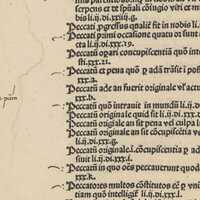 serpens et et spūali cōiugio viri et
bis li.ij.di.xxiiij.g.
Peccati ꝓgressus qualiē fit in nobis li.
Peccati primi occasione quatu or sunt
ta li.ij.di.xxx.19.
Peccatū oxari concupiscentiā quō
sti.xxx.21.
Peccatū et pena quō p adā trāsit i pos
xxx.a.
Peccatū ade an fuerit originale vł actu
xxx.b.
Peccatū quō intrauit in mundū li.ij.di
Peccatū originale quid sit li.ij.di.xxx.
Peccatū originale an sit pena vel culpa
Peccatū originale an sit cōcupiscētia vł
c.g.
Peccatū originale.i.cōcupiscentia an
ponit li.ij.di.xxx.i.
Peccatū in quo oēs peccauerunt quod
xxx.k.
Peccatores multos cōstitutos eē p vnū
tiam quō intelligit̄ li.ij.di.xxx.l.